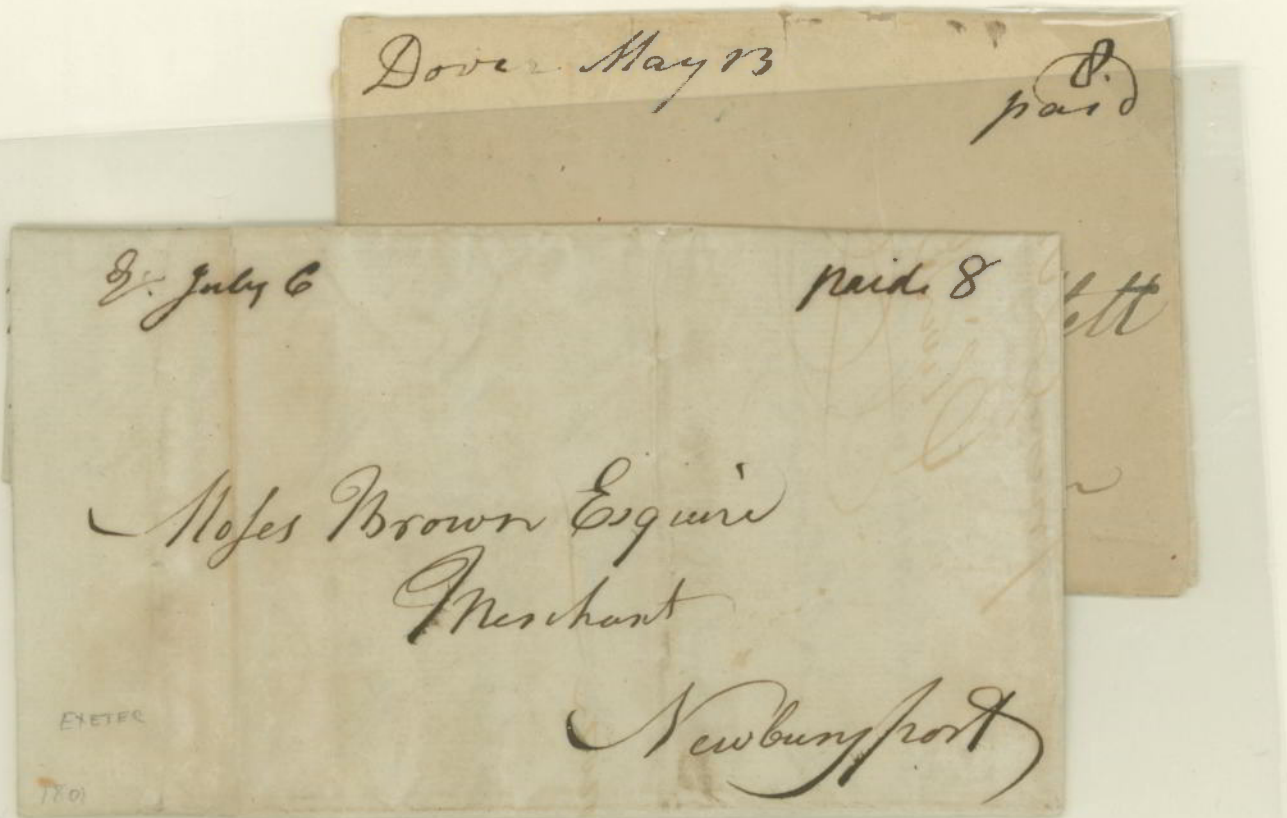 Dover May 13
8.
paid
Ex. July 6
paid. 8
Moses Brown Esquire
Merchant
Newburyport
EXETER
1801